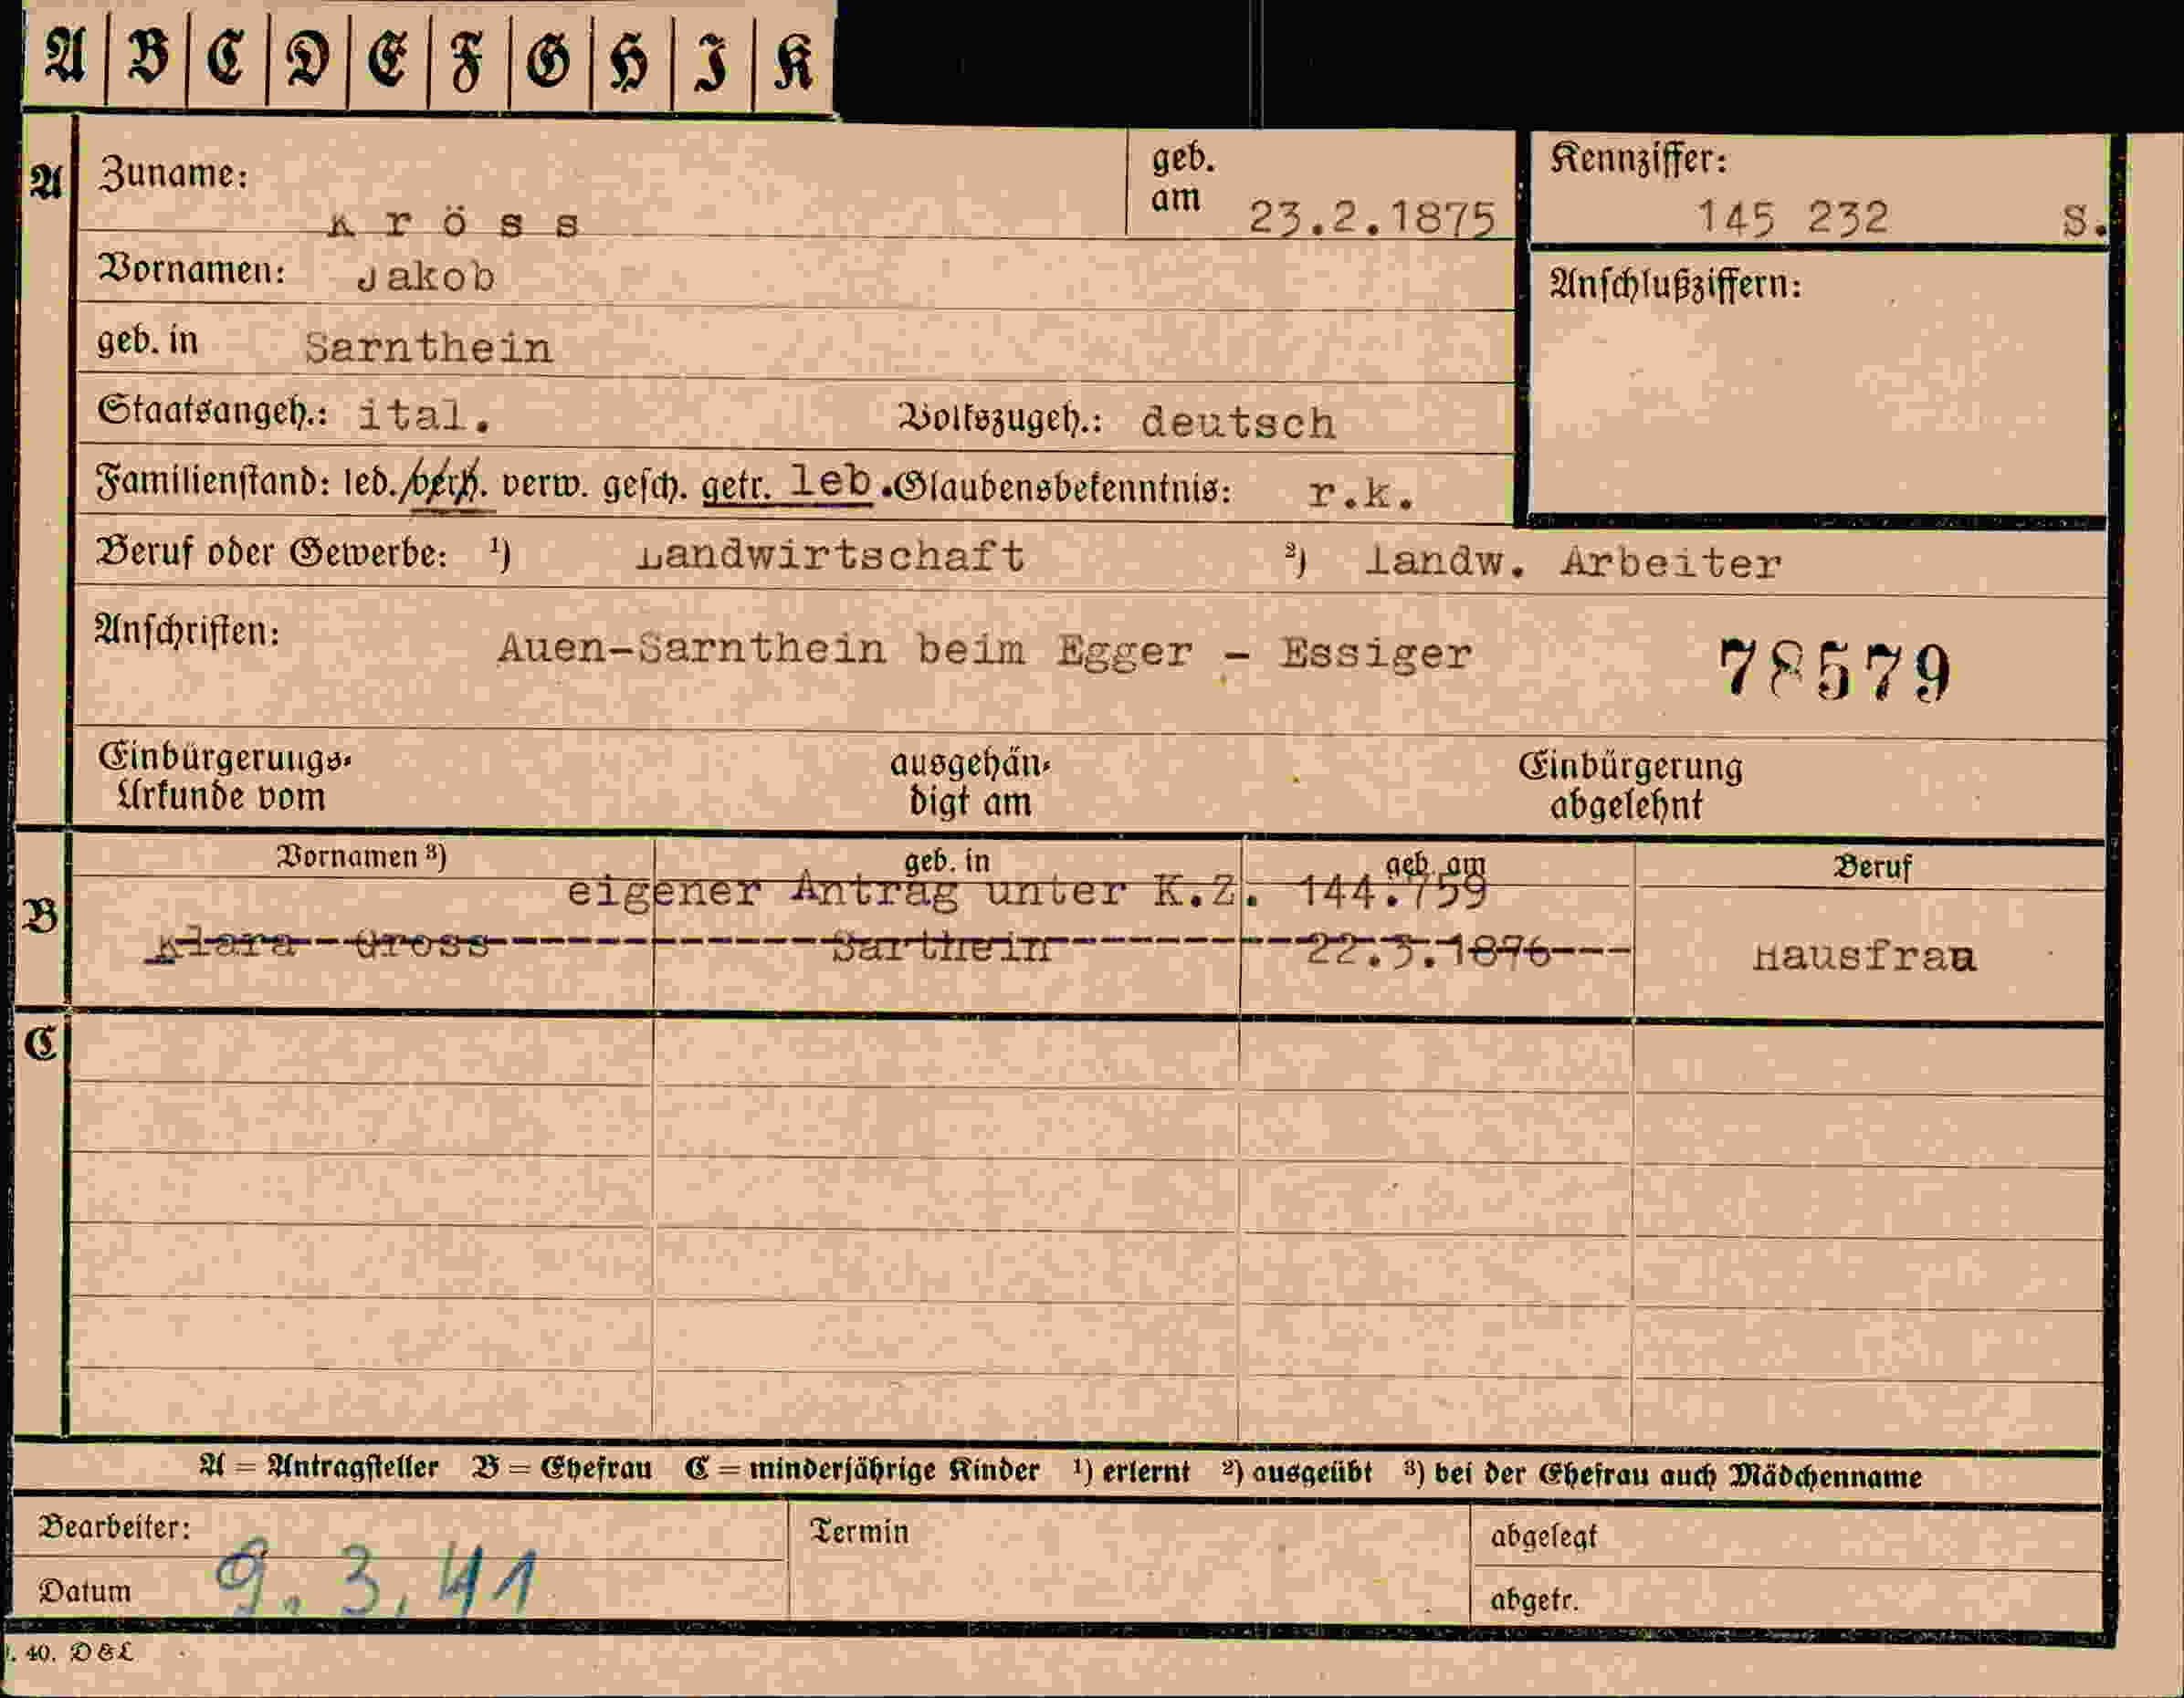 A B C D E F G H I K
A Zuname: Kröss geb. am 23.2.1875 Kennziffer: 145 232 S.
Vornamen: Jakob Anschlußziffern:
geb. in Sarnthein
Staatsangeh.: ital. Volkszugeh.: deutsch
Familienstand: led./verh. verw. gesch. getr. leb. Glaubensbekenntnis: r.k.
Beruf oder Gewerbe: ¹) Landwirtschaft ²) Landw. Arbeiter
Anschriften: Auen-Sarnthein beim Egger - Essiger 78579
Einbürgerungs- ausgehän- Einbürgerung
Urkunde vom digt am abgelehnt
B Vornamen ³) geb. in geb. am Beruf
eigener Antrag unter K.Z. 144.759
Klara Gross Sarthein 22.3.1876 Hausfrau
C
A = Antragsteller B = Ehefrau C = minderjährige Kinder ¹) erlernt ²) ausgeübt ³) bei der Ehefrau auch Mädchenname
Bearbeiter: Termin abgelegt
Datum 9.3.41 abgetr.
40. D&L